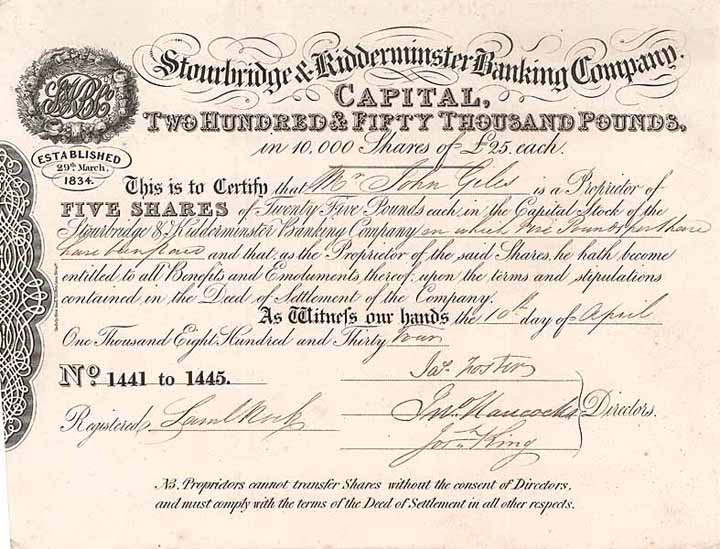 Stourbridge & Kidderminster Banking Company.
CAPITAL,
TWO HUNDRED & FIFTY THOUSAND POUNDS,
in 10,000 Shares of £25 each.
ESTABLISHED
29th March,
1834.
This is to Certify that Mr John Giles is a Proprietor of
FIVE SHARES of Twenty Five Pounds each, in the Capital Stock of the
Stourbridge & Kidderminster Banking Company on which Five Pounds per share
have been paid and that, as the Proprietor of the said Shares, he hath become
entitled to all Benefits and Emoluments thereof, upon the terms and stipulations
contained in the Deed of Settlement of the Company.
As Witness our hands the 10th day of April
One Thousand Eight Hundred and Thirty Four
No 1441 to 1445.
Jas. Foster
Jno. Hancocks
Directors.
Registered
Josh King
NB. Proprietors cannot transfer Shares without the consent of Directors,
and must comply with the terms of the Deed of Settlement in all other respects.